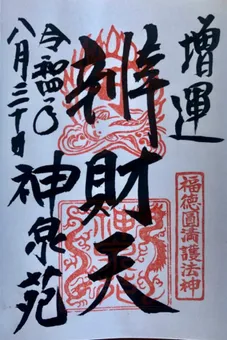 増運
福徳圓満護法神
辨財天
令和四年
八月三十日
神泉苑